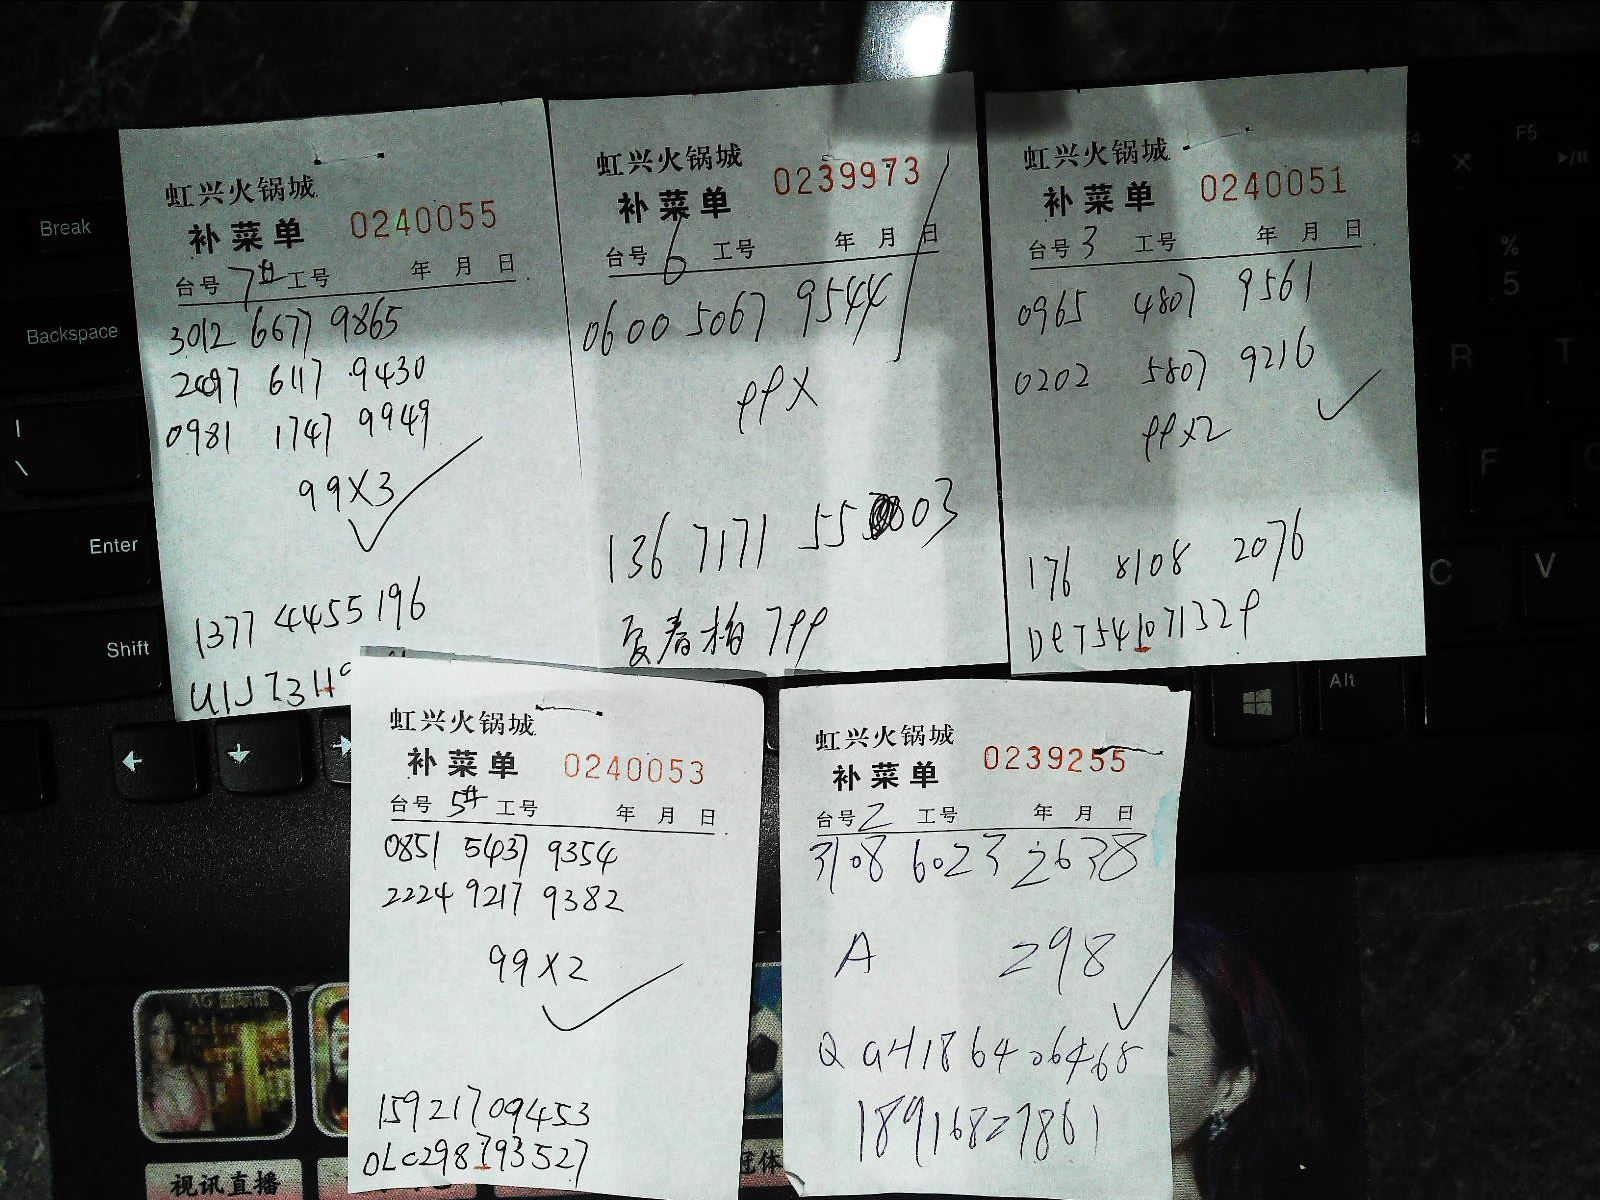 虹兴火锅城
补菜单 0240055
台号 7# 工号 年 月 日
3012 6677 9865
2097 6117 9430
0981 1747 9949
99X3
1377 4455 196
虹兴火锅城
补菜单 0239973
台号 6 工号 年 月 日
0600 5067 9544
99X
136 7171 55 03
夏春梅 799
虹兴火锅城
补菜单 0240051
台号 3 工号 年 月 日
0965 4807 9561
0202 5807 9216
99X2
176 8108 2076
DPT541071329
虹兴火锅城
补菜单 0240053
台号 5# 工号 年 月 日
0851 5437 9354
2224 9217 9382
99X2
15921709453
OLC298793527
虹兴火锅城
补菜单 0239255
台号 2 工号 年 月 日
3108 6023 2638
A 298
18916827861
Break
Backspace
Enter
Shift
F5
%
5
R
T
F
C
V
Alt
AG 国际馆
视讯直播